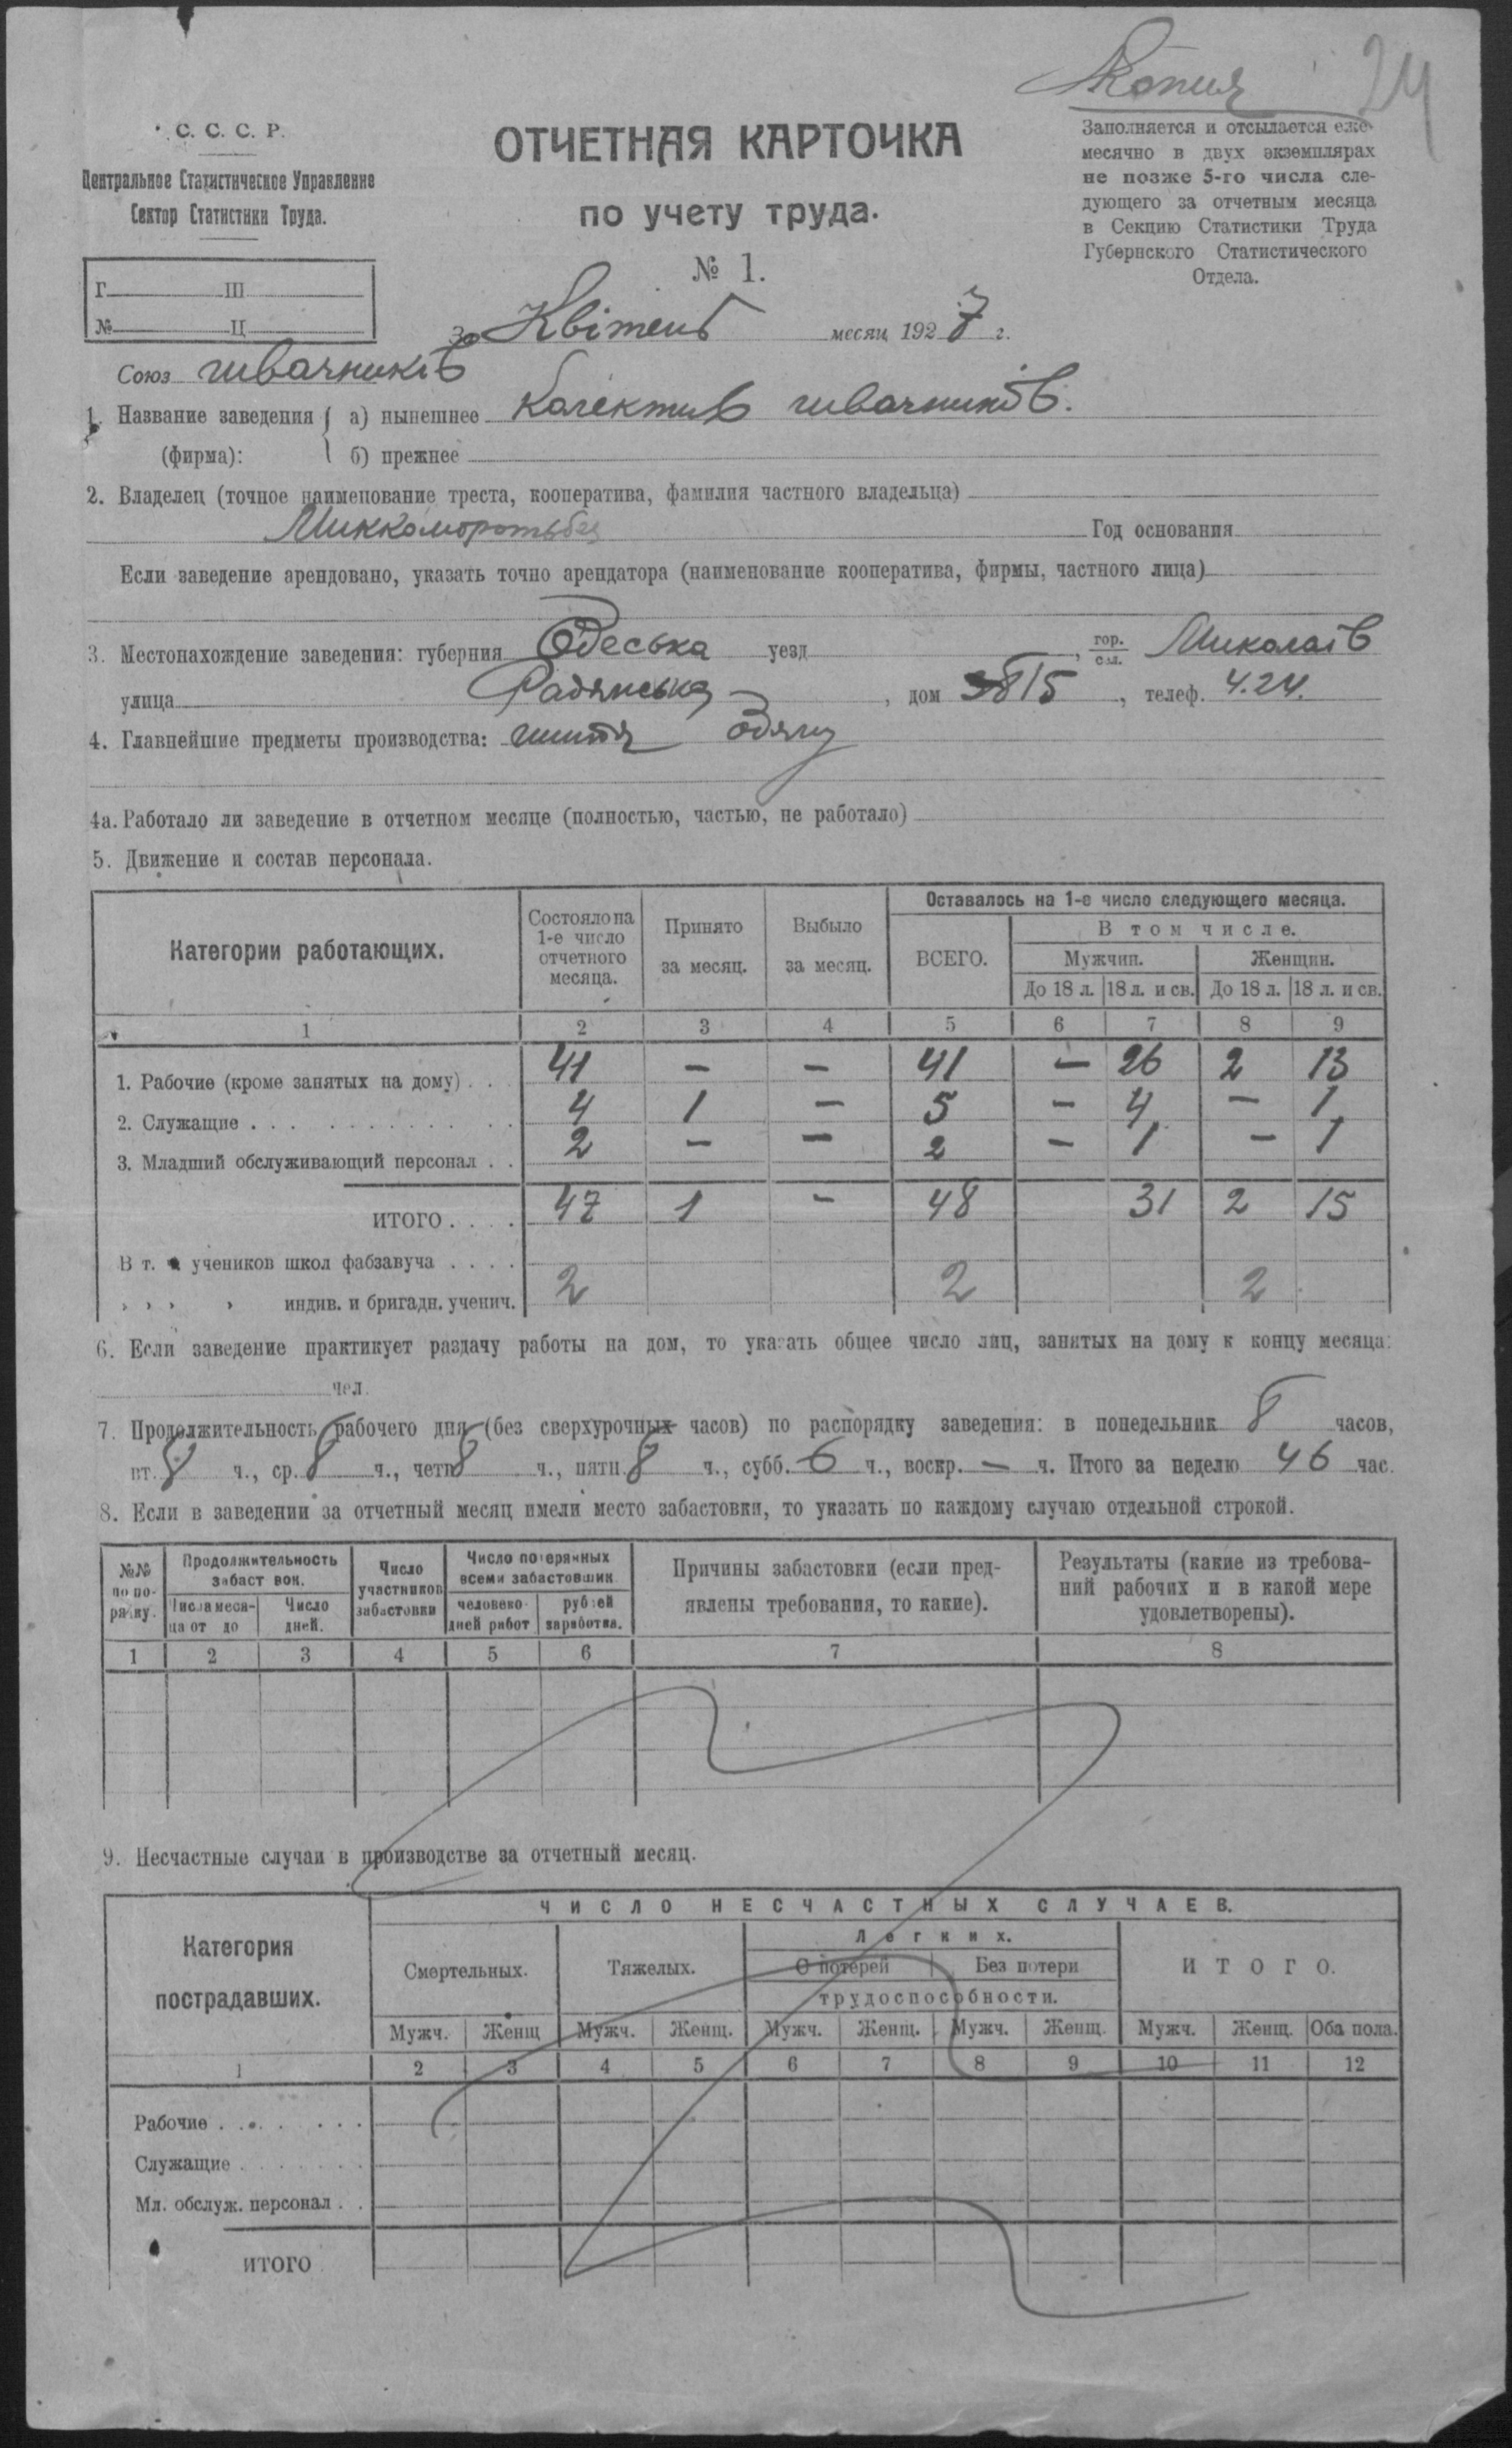 Копия 24
С. С. С. Р.
Центральное Статистическое Управление
Сектор Статистики Труда.
ОТЧЕТНАЯ КАРТОЧКА
по учету труда.
№ 1.
Заполняется и отсылается еже-
месячно в двух экземплярах
не позже 5-го числа сле-
дующего за отчетным месяца
в Секцию Статистики Труда
Губернского Статистического
Отдела.
Г. Ш
№ Ц
За Квітень месяц 1927 г.
Союз швачників
1. Название заведения а) нынешнее Колектив швачників.
(фирма): б) прежнее
2. Владелец (точное наименование треста, кооператива, фамилия частного владельца)
Год основания
Если заведение арендовано, указать точно арендатора (наименование кооператива, фирмы, частного лица)
3. Местонахождение заведения: губерния Одеська уезд , гор. сел. Миколаїв
улица Радянська , дом 15 , телеф. 4.24.
4. Главнейшие предметы производства: шиття одягу
4а. Работало ли заведение в отчетном месяце (полностью, частью, не работало)
5. Движение и состав персонала.
Категории работающих. Состояло на 1-е число отчетного месяца. Принято за месяц. Выбыло за месяц. Оставалось на 1-е число следующего месяца.
ВСЕГО. В том числе.
Мужчин. Женщин.
До 18 л. 18 л. и св. До 18 л. 18 л. и св.
1 2 3 4 5 6 7 8 9
1. Рабочие (кроме занятых на дому) . . . 41 — — 41 — 26 2 13
2. Служащие . . . 4 1 — 5 — 4 — 1
3. Младший обслуживающий персонал . . 2 — — 2 — 1 — 1
ИТОГО . . . . 47 1 — 48 31 2 15
В т. ч. учеников школ фабзавуча . . . .
» » » » индив. и бригадн. ученич. 2 2 2
6. Если заведение практикует раздачу работы на дом, то указать общее число лиц, занятых на дому к концу месяца:
чел.
7. Продолжительность рабочего дня (без сверхурочных часов) по распорядку заведения: в понедельник 8 часов,
вт. 8 ч., ср. 8 ч., четв. 8 ч., пятн. 8 ч., субб. 6 ч., воскр. — ч. Итого за неделю 46 час.
8. Если в заведении за отчетный месяц имели место забастовки, то указать по каждому случаю отдельной строкой.
№№ по по-рядку. Продолжительность забастовок. Число участников забастовки Число потерянных всеми забастовщик. Причины забастовки (если пред-явлены требования, то какие). Результаты (какие из требова-ний рабочих и в какой мере удовлетворены).
Числа меся-ца от до Число дней. человеко-дней работ рублей заработка.
1 2 3 4 5 6 7 8
9. Несчастные случаи в производстве за отчетный месяц.
Категория пострадавших. ЧИСЛО НЕСЧАСТНЫХ СЛУЧАЕВ.
Смертельных. Тяжелых. Легких. ИТОГО.
С потерей Без потери
трудоспособности.
Мужч. Женщ. Мужч. Женщ. Мужч. Женщ. Мужч. Женщ. Мужч. Женщ. Оба пола.
1 2 3 4 5 6 7 8 9 10 11 12
Рабочие . . . . . . .
Служащие . . . . . . .
Мл. обслуж. персонал . .
ИТОГО